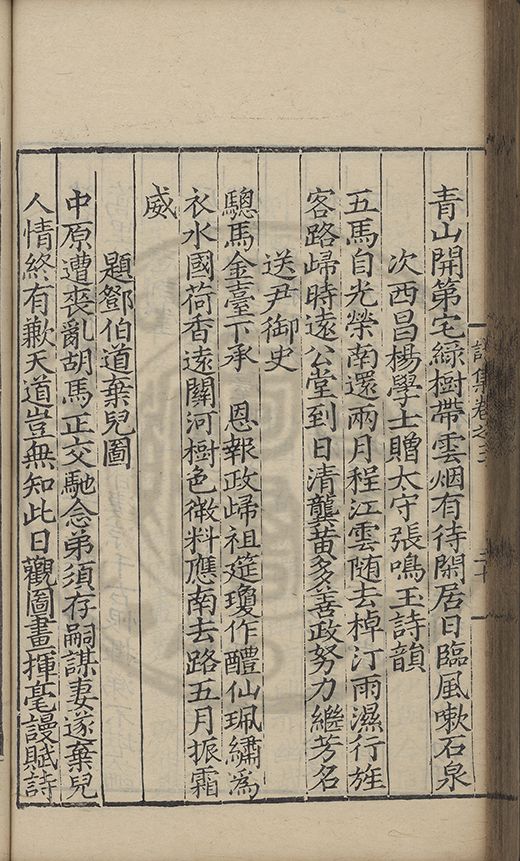 青山開第宅綠樹帶雲烟有待閑居日臨風嗽石泉
次西昌楊學士贈太守張鳴玉詩韻
五馬自光榮南還兩月程江雲随去棹汀雨濕行旌
客路歸時遠公堂到日清龔黄多善政努力繼芳名
送尹御史
驄馬金臺下承　恩報政歸祖筵瓊作醴仙珮繡為
衣水國荷香遠關河樹色微料應南去路五月振霜
威
題鄧伯道棄兒圖
中原遭喪亂胡馬正交馳念弟須存嗣謀妻遂棄兒
人情終有歉天道豈無知此日觀圖畫揮毫謾賦詩
詩集卷之三